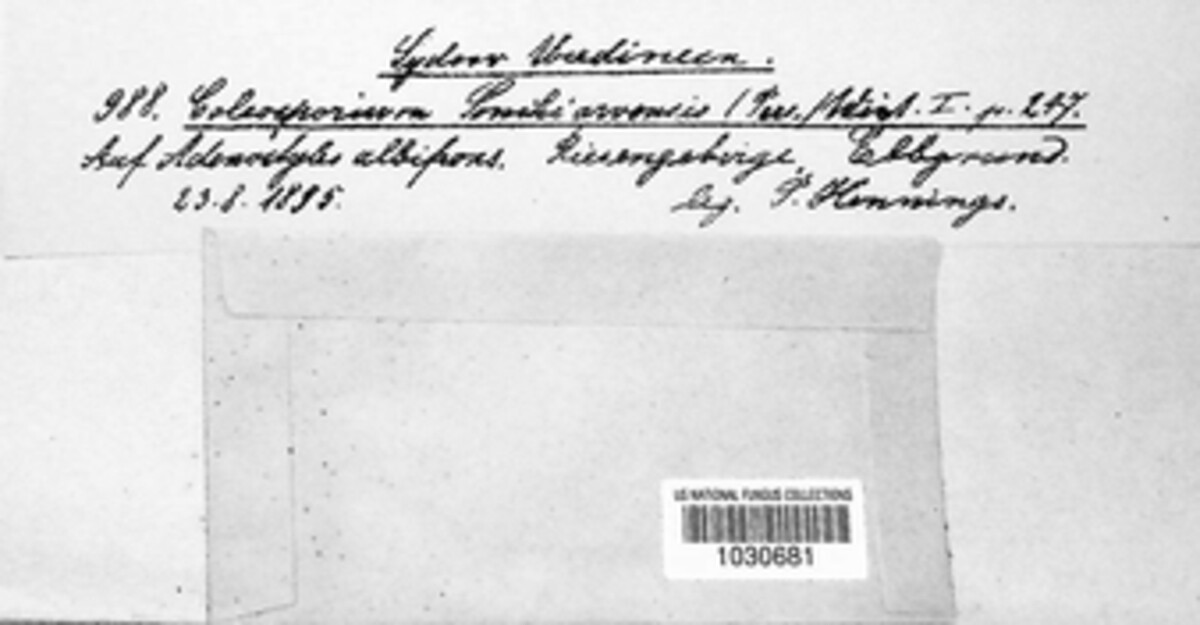 Sydow Uredineen.
988. Coleosporium Sonchi arvensis (Pers.) Wint. I. p. 247.
Auf Adenostyles albifrons. Riesengebirge, Elbgrund.
23.8.1895. leg. P. Hennings.
US NATIONAL FUNGUS COLLECTIONS
1030681